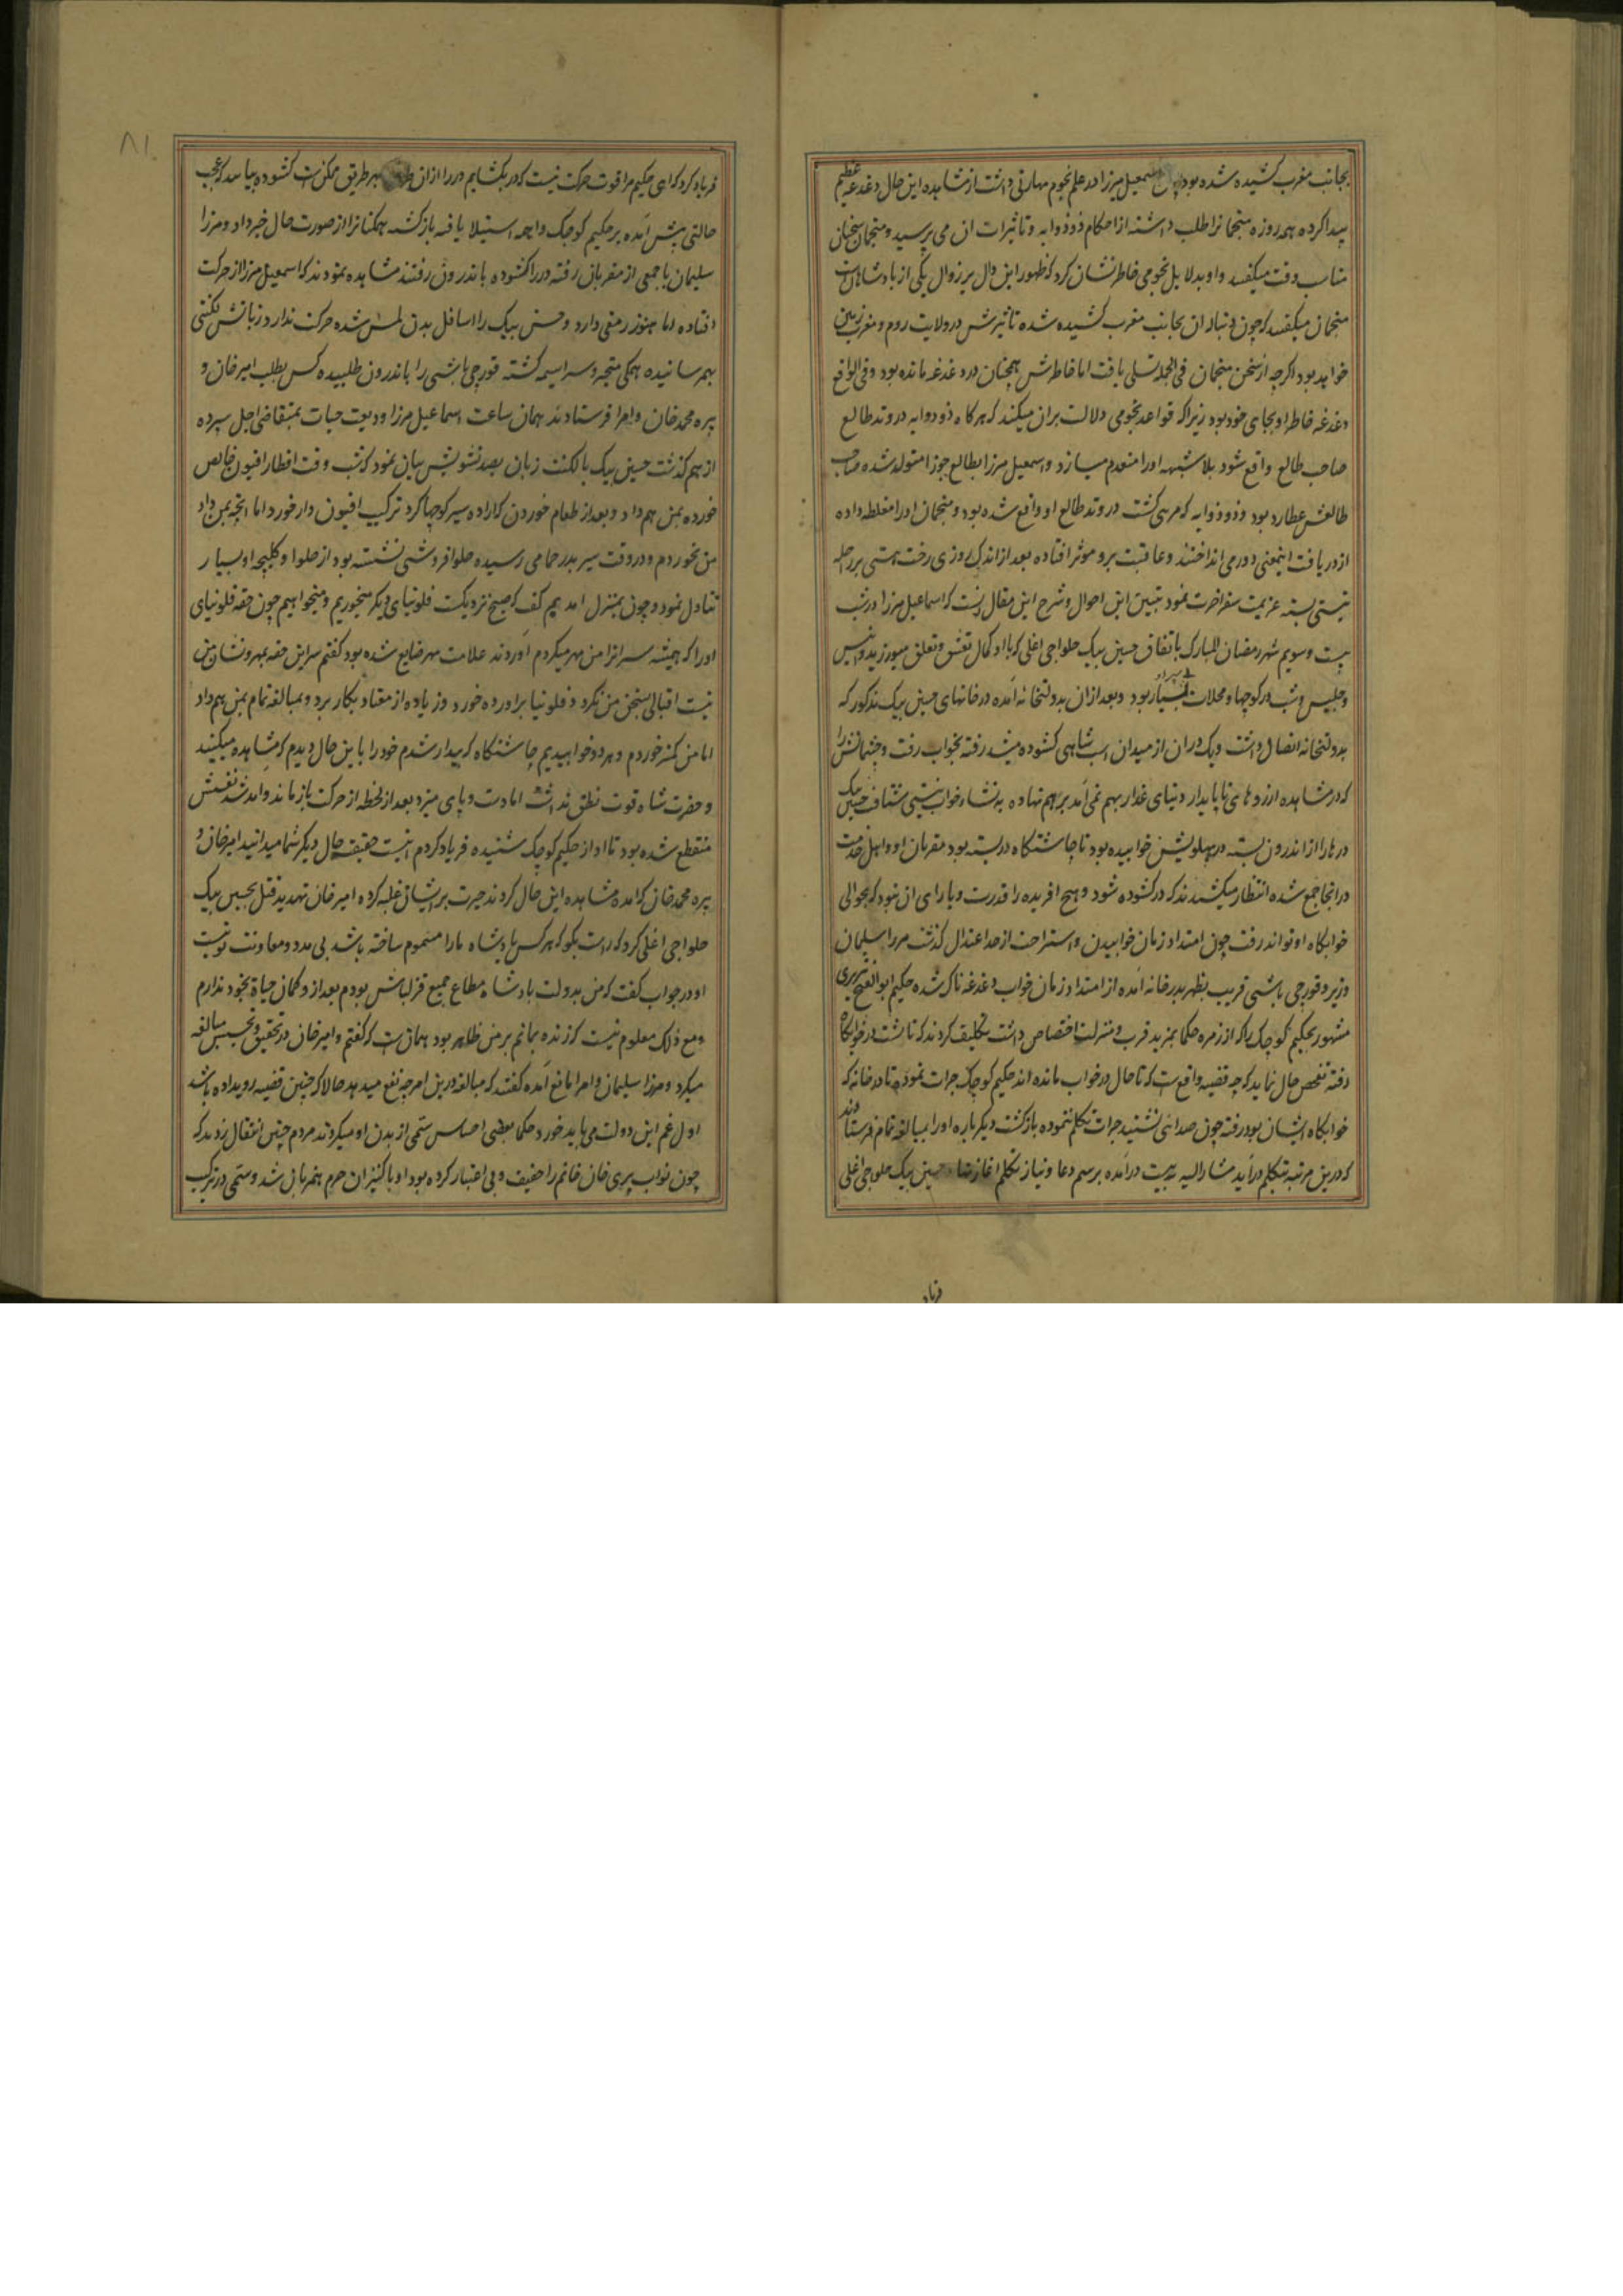 بجانب مغرب کشیده شده بود اسمعیل میرزا در علم نجوم مهارتی داشت از مشاهده این حال دغدغه عظیم
پیدا کرده همه روزه منجمانرا طلب داشته از احکام ذو ذوابه و تاثیرات ان می پرسید و منجمان سخنان
مناسب وقت میکفتند و او بدلایل نجومی خاطر نشان کرد که ظهور این دال بر زوال یکی از پادشاهان است
منجمان میکفتند که چون دنباله ان بجانب مغرب کشیده شده تاثیرش در ولایت روم و مغرب زمین
خواهد بود اکرچه از سخن منجمان فی الجمله تسلی یافت اما خاطرش همچنان در دغدغه مانده بود و فی الواقع
دغدغه خاطر او بجای خود بود زیرا که قواعد نجومی دلالت بران میکند که هر کاه ذو ذوابه در وتد طالع
صاحب طالع واقع شود بلا شبهه او را منعدم میسازد و اسمعیل میرزا بطالع جوزا متولد شده صاحب
طالعش عطارد بود و ذو ذوابه که مرئی کشت در وتد طالع او واقع شده بود و منجمان او را مغلطه داده
از دریافت اینمعنی دور می انداختند و عاقبت برو موثر افتاده بعد از اندک روزی رخت هستی بر راحله
نیستی بسته عزیمت سفر اخرت نمود تبیین این احوال و شرح این مقال انست که اسماعیل میرزا در شب
بیست و سویم شهر رمضان المبارک باتفاق حسین بیک حلواجی اغلی که با او کمال تعشق و تعلق میورزید و انیس
و جلیس شب در کوچها و محلات بسیار بود و بعد از ان بدولتخانه آمده در خانهای حسین بیک مذکور که
بدولتخانه اتصال داشت و یک در ان از میدان اسب شاهی کشوده میشد رفته بخواب رفت و چشمانش را
که در مشاهده ارزوهای ناپایدار دنیای غدار بهم نمی آمد بر هم نهاده به نشاء خواب نیستی شتافت حسین بیک
درها را از اندرون بسته در پهلویش خوابیده بود تا چاشتکاه در بسته بود مقربان او و اهل خدمت
در انجا جمع شده انتظار میکشیدند که در کشوده شود و هیچ افریده را قدرت و یارای ان نبود که بحوالی
خوابکاه او تواند رفت چون امتداد زمان خوابیدن و استراحت از حد اعتدال کذشت میرزا سلیمان
وزیر و قورچی باشی قریب بظهر بدر خانه آمده از امتداد زمان خواب دغدغه ناک شده حکیم ابو الفتح تبریزی
مشهور بحکیم کوچک را که از زمره حکما بمزید قرب و منزلت اختصاص داشت تکلیف کردند که تا پشت در خوابکاه
رفته تفحص حال نماید که چه قضیه واقع است که تا حال در خواب مانده اند حکیم کوچک جرات نموده تا در خانه که
خوابکاه ایشان بود رفته چون صدائی نشنید جرات تکلم ننموده بازکشت دیکر باره او را بمبالغه تمام فرستادند
که درین مرتبه بتکلم در آید مشار الیه در آمده برسم دعا و نیاز تکلم اغاز نهاد حسین بیک حلواجی اغلی
فریاد
فریاد کرد که ای حکیم مرا قوت حرکت نیست که در بکشایم در را از ان طرف بهر طریق ممکن است کشوده بیائید که عجب
حالتی پیش آمده بر حکیم کوچک واهمه استیلا یافته بازکشته همکنانرا از صورت حال خبر داد و میرزا
سلیمان با جمعی از مقربان رفته در را کشوده باندرون رفتند مشاهده نمودند که اسمعیل میرزا از حرکت
افتاده اما هنوز رمقی دارد و حسن بیک را اسافل بدن لمس شده حرکت ندارد و زبانش لکنتی
بهم رسانیده همکی متحیر و سراسیمه کشته قورچی باشی را باندرون طلبیده کس بطلب امیر خان و
پیره محمد خان و امرا فرستادند همان ساعت اسماعیل میرزا ودیعت حیات بمتقاضی اجل سپرده
از هم کذشت حسین بیک با لکنت زبان بصد تشویش بیان نمود که شب وقت افطار افیون خالص
خورده بمن هم داد و بعد از طعام خوردن که اراده سیر کوچها کرد ترکیب افیون دار خورد اما انچه بمن داد
من نخوردم و در وقت سیر بدر حمامی رسیده حلوا فروشی نشسته بود از حلوا و کلیچه او بسیار
تناول نمود و چون بمنزل امدیم کفت که صبح نزدیکست فلونیای دیکر میخوریم و میخوابیم چون حقه فلونیای
او را که همیشه سر انرا من مهر میکردم آوردند علامت مهر ضایع شده بود کفتم سر این حقه بمهر و نشان من
نیست اقبالی بسخن من نکرد و فلونیا براورده خورد و زیاده از معتاد بکار برد و بمبالغه تمام بمن هم داد
اما من کمتر خوردم و هر دو خوابیدیم چاشتکاه که بیدار شدم خود را باین حال دیدم که مشاهده میکنید
و حضرت شاه قوت نطق نداشت اما دست و پای میزد بعد از لحظه از حرکت باز ماند و آمد شد نفسش
منقطع شده بود تا اواز حکیم کوچک شنیده فریاد کردم اینست حقیقت حال دیکر شما میدانید امیر خان و
پیره محمد خان که آمده مشاهده این حال کردند حیرت بر ایشان غلبه کرده امیر خان تهدید قتل بحسین بیک
حلواجی اغلی کرد که راست بکو که هر کس پادشاه ما را مسموم ساخته باشد بی مدد و معاونت تو نیست
او در جواب کفت که من بدولت پادشاه مطاع جمیع قزلباش بودم بعد از و کمان حیاة بخود ندارم
و مع ذلک معلوم نیست که زنده بمانم بر من ظاهر بود همان است که کفتم و امیر خان در تحقیق و تجسس مبالغه
میکرد و میرزا سلیمان و امرا مانع آمده کفتند که مبالغه درین امر چه نفع میدهد حالا که چنین قضیه رویداده باشد
اول غم این دولت می باید خورد و حکما بعضی احساس سمی از بدن او میکردند مردم چنین انتقال زدند که
چون نواب پری خان خانم را خفیف و بی اعتبار کرده بود او با کنیزان حرم همزبان شد و سمی در ترکیب